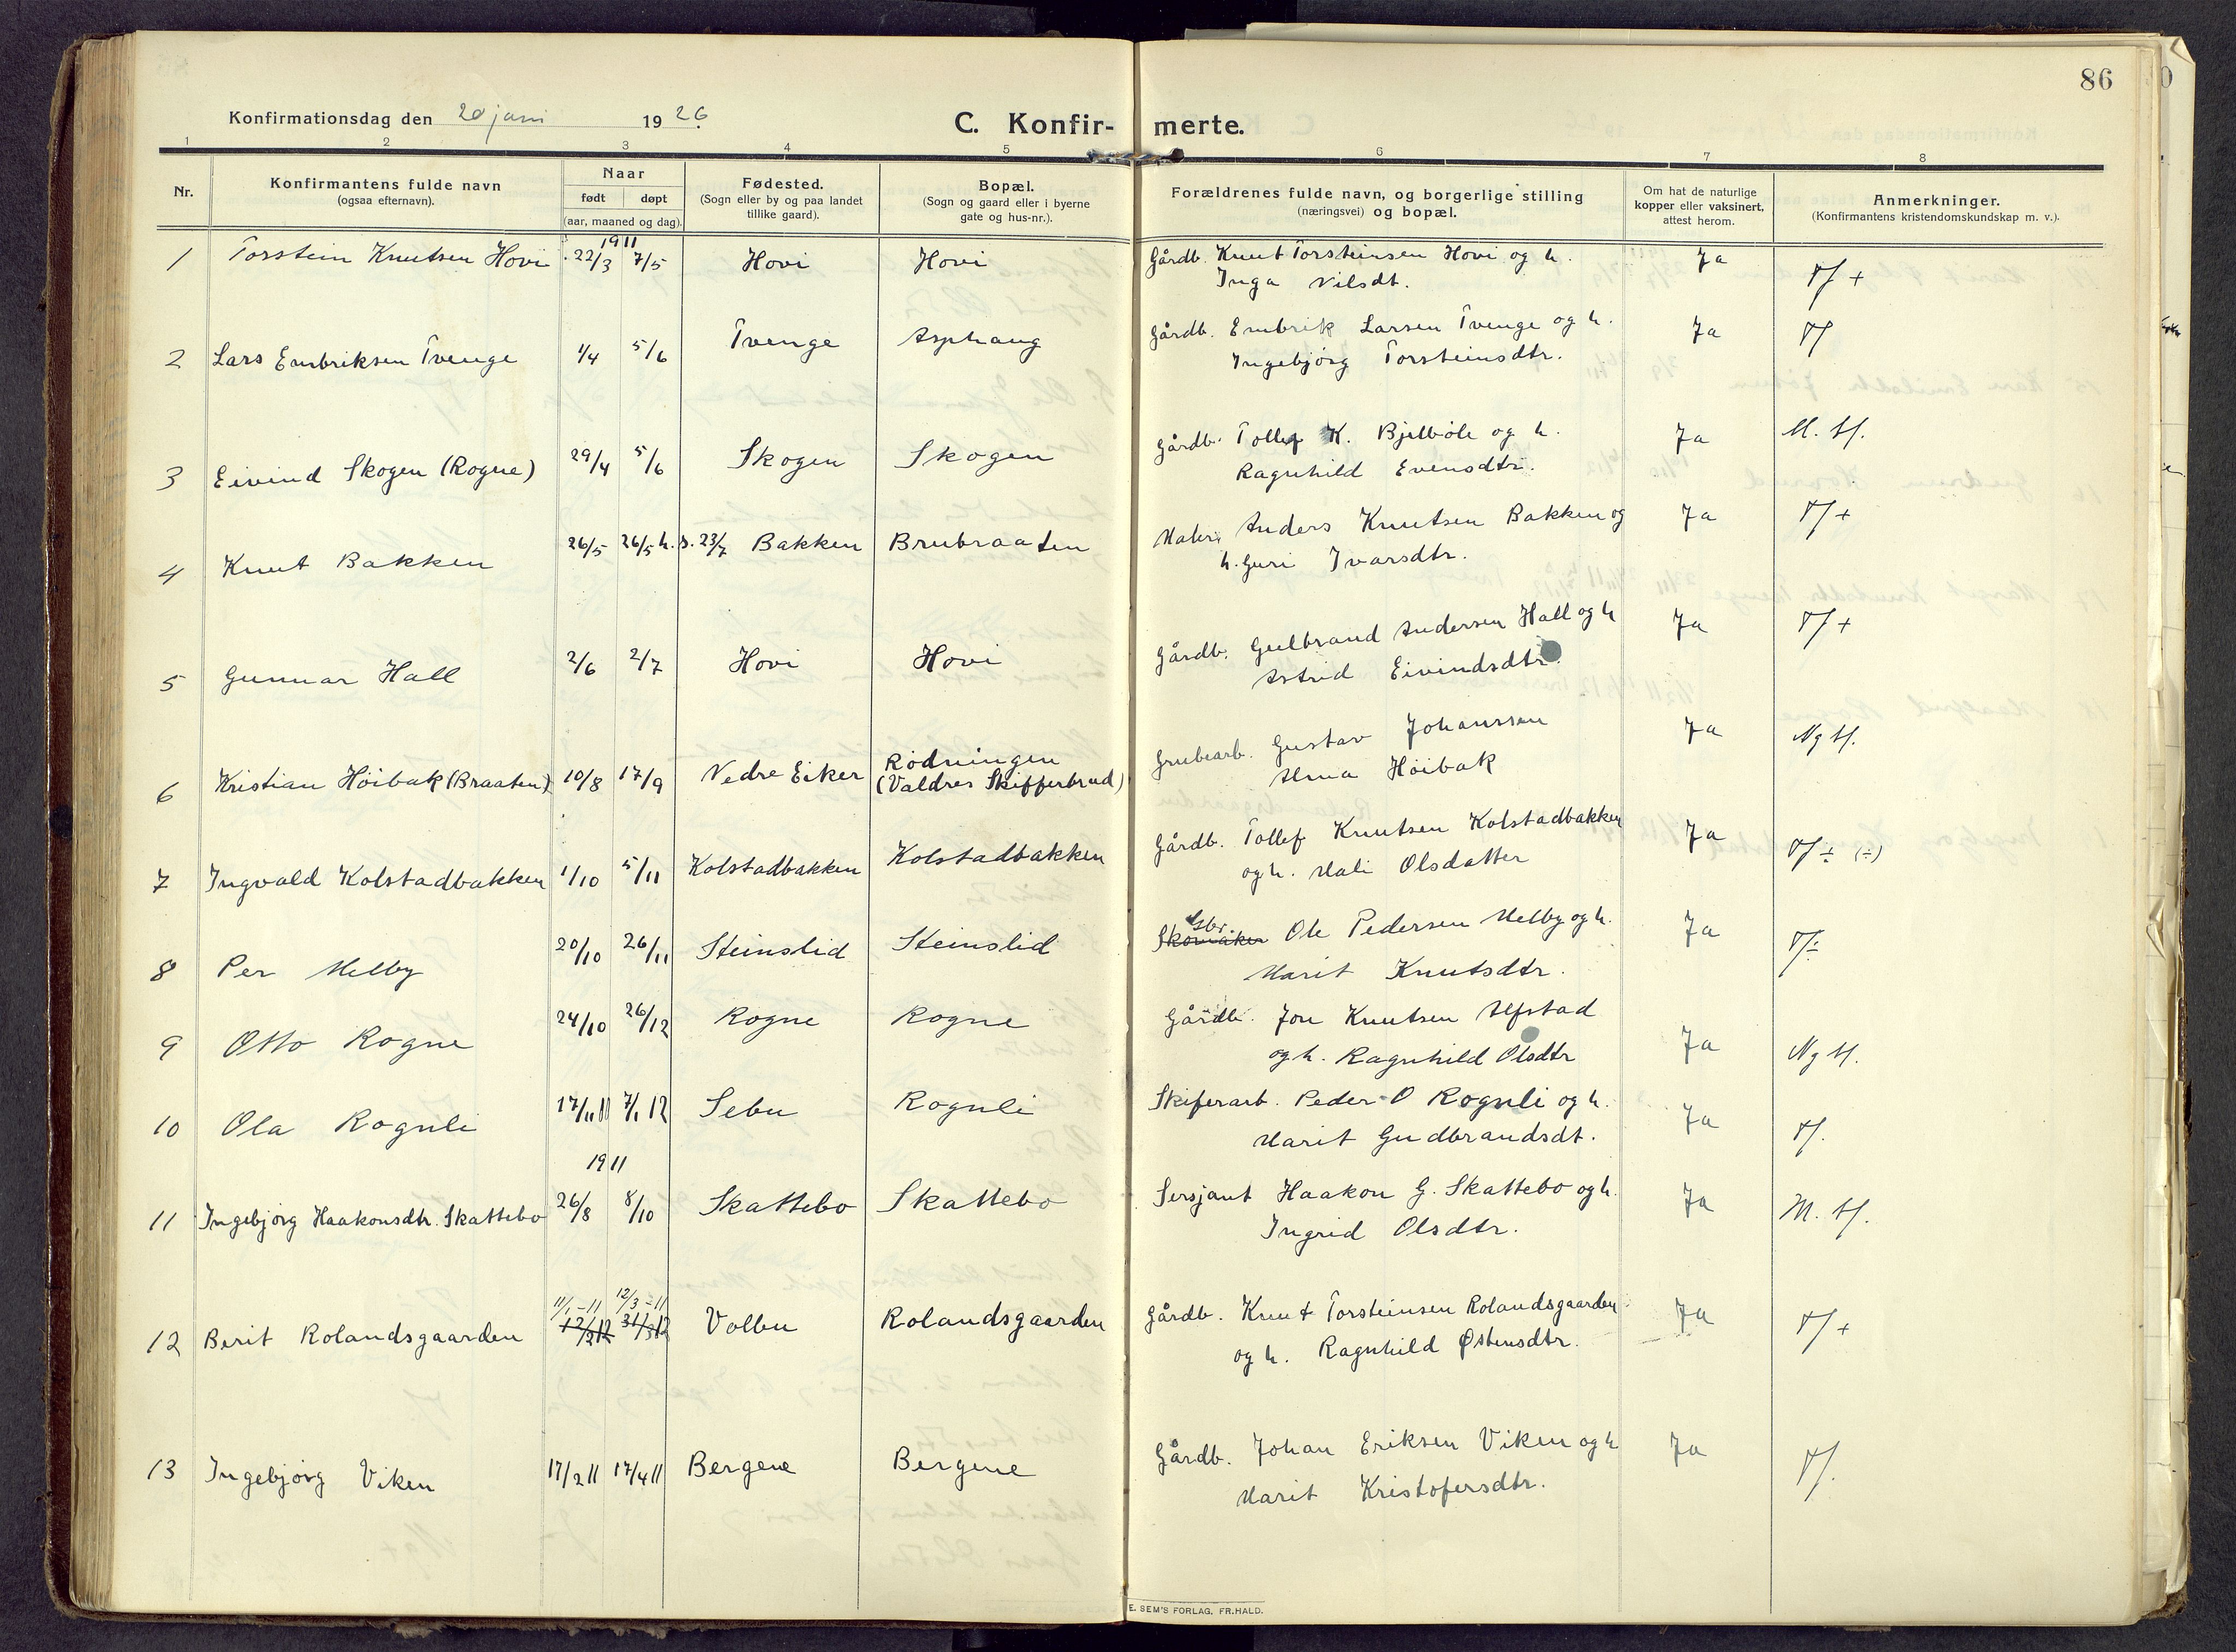 86
Konfirmationsdag den 20 juni 1926.
C. Konfir- merte.
1 2 3 4 5 6 7 8
Nr.
Konfirmantens fulde navn
(ogsaa efternavn).
Naar
født døpt
(aar, maaned og dag).
Fødested.
(Sogn eller by og paa landet
tillike gaard).
Bopæl.
(Sogn og gaard eller i byerne
gate og hus-nr.).
Forældrenes fulde navn, og borgerlige stilling
(næringsvei) og bopæl.
Om hat de naturlige
kopper eller vaksinert,
attest herom.
Anmerkninger.
(Konfirmantens kristendomskundskap m. v.).
1911
1 Torstein Knutsen Hovi 22/3 7/5 Hovi Hovi Gårdb. Knut Torsteinsen Hovi og h. Ja
Inga Nilsdt.
2 Lars Embriksen Tvenge 1/4 5/6 Tvenge Asphaug Gårdb. Embrik Larsen Tvenge og h. Ja
Ingebjörg Torsteinsdtr.
3 Eivind Skogen (Rogne) 29/4 5/6 Skogen Skogen Gårdb. Tollef K. Bjelbøle og h. Ja
Ragnhild Evensdtr.
4 Knut Bakken 26/5 26/5 h. p. 23/7 Bakken Brubraaten Maler Anders Knutsen Bakken og Ja
h. Guri Ivarsdtr.
5 Gunnar Hall 2/6 2/7 Hovi Hovi Gårdb. Gulbrand Andersen Hall og h Ja
Astrid Eivindsdtr.
6 Kristian Höibak (Braaten) 10/8 17/9 Nedre Eiker Rödningen Grubearb. Gustav Johanssen Ja
(Valdres Skifferbrud) Höibak
7 Ingvald Kolstadbakken 1/10 5/11 Kolstadbakken Kolstadbakken Gårdb. Tollef Knutsen Kolstadbakken Ja
og h. Mali Olsdatter
8 Per Melby 20/10 26/11 Steinslid Steinslid Skomaker Ole Pedersen Melby og h. Ja
Marit Knutsdtr.
9 Otto Rogne 24/10 26/12 Rogne Rogne Gårdb. Jon Knutsen Alfstad
og h. Ragnhild Olsdtr Ja
10 Ola Rognli 17/11 11 7/1 12 Sebu Rognli Skiferarb. Peder O Rognli og h. Ja
Marit Gudbrandsdt.
1911
11 Ingebjörg Haakonsdtr. Skattebo 26/8 8/10 Skattebo Skattebo Sersjant Haakon G. Skattebo og h. Ja
Ingrid Olsdtr.
11/1-11 12/3-11
12 Berit Rolandsgaarden 12/2 12 31/3 12 Volbu Rolandsgaarden Gårdb. Knut Torsteinsen Rolandsgaarden Ja
og h. Ragnhild Østensdtr.
13 Ingebjörg Viken 17/2 11 17/4 11 Bergene Bergene Gårdb. Johan Eriksen Viken og h Ja
Marit Kristofersdtr.
E. SEM'S FORLAG, FR.HALD.